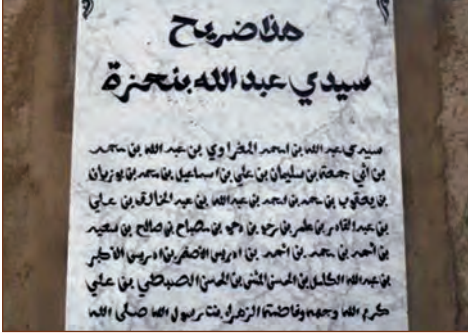 هذا ضريح
سيدي عبد الله بنحمزة
سيدي عبد الله بن امحمد المغراوي بن عبد الله بن محمد
بن أبي جمعة بن سليمان بن علي بن اسماعيل بن محمد بن بوزيان
بن يعقوب بن محمد بن احمد بن عبد الله بن عبد الخالق بن علي
بن عبد القادر بن عامر بن رحو بن دحو بن مصباح بن صالح بن سعيد
بن احمد بن محمد بن احمد بن ادريس الأصغر بن ادريس الأكبر
بن عبد الله الكامل بن الحسن المثنى بن الحسن السبطي بن علي
كرم الله وجهه وفاطمة الزهراء بنت رسول الله صلى الله